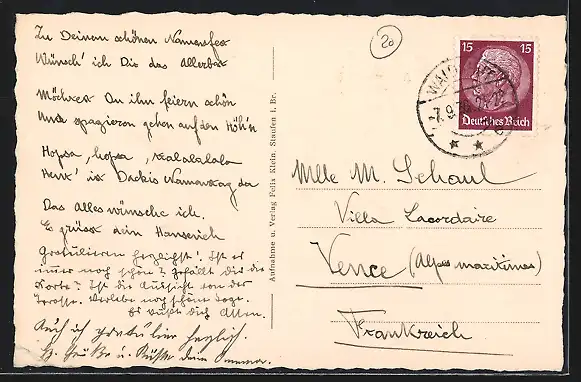 Zu Deinem schönen Namensfest
Wünsch' ich Dir das Allerbest
Möchtest Du ihn feiern schön
Und spazieren gehen auf den Höh'n
Hopsa, hopsa, tralalalala
Heut' ist Namenstag da
Das Alles wünsche ich.
Es grüsst dein Hanserich
Gratulieren herzlichst! Ist es
immer noch schön? Gefällt dir die
Karte? Ist die Aussicht von der
Terasse. Verlebe noch schöne Tage.
Es küßt dich
Auch ich gratulier herzlich.
Grüße u. Küsse dein
Aufnahme u. Verlag Felix Klein, Staufen i. Br.
20
15 15
Deutsches Reich
7.9.
Mlle M. Schaul
Villa Lacordaire
Vence (Alpes maritimes)
Frankreich